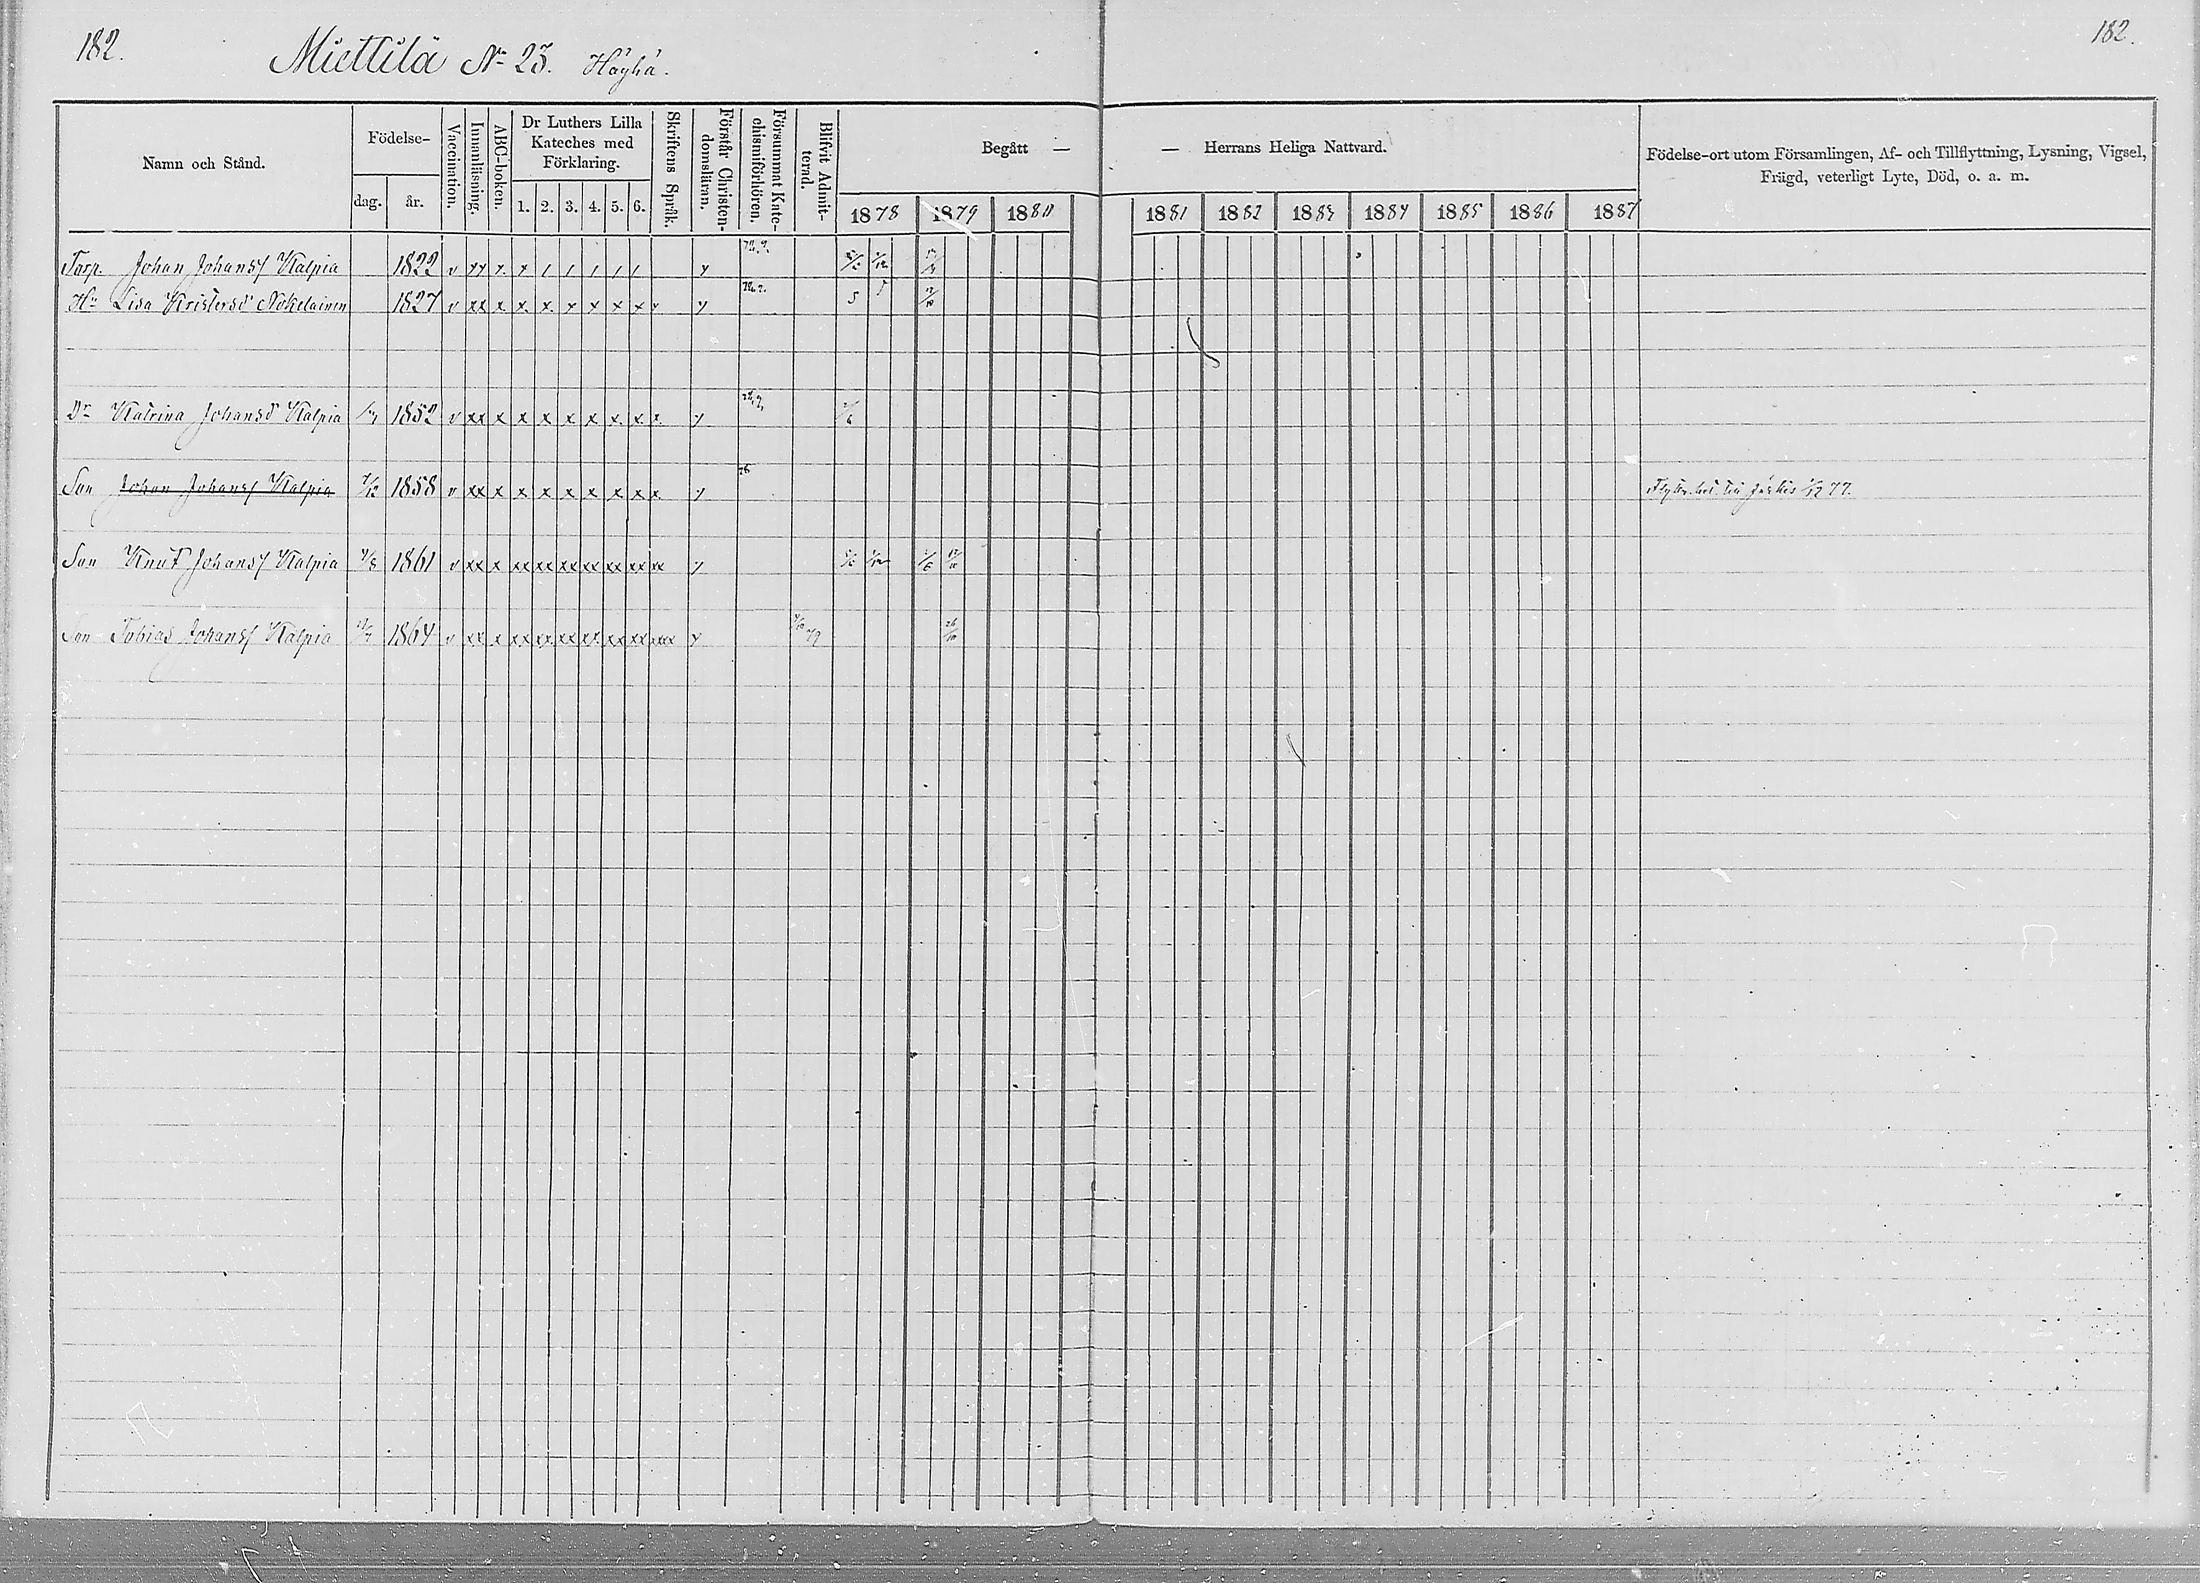 182. Miettilä No 23. Häyhä. 182.
Namn och Stånd.
Födelse-
dag. år.
Vaccination.
Innanläsning.
ABC-boken.
Dr Luthers Lilla
Kateches med
Förklaring.
1. 2. 3. 4. 5. 6.
Skriftens Språk.
Förstår Christen-
domsläran.
Försummat Kate-
chismiförhören.
Blifvit Admit-
terad.
Begått — — Herrans Heliga Nattvard.
1878 1879 1880 1881 1882 1883 1884 1885 1886 1887
Födelse-ort utom Församlingen, Af- och Tillflyttning, Lysning, Vigsel,
Frägd, veterligt Lyte, Död, o. a. m.
Torp. Johan Johansf Kalpia 1822 v xx x x / / / / /
Hu Lisa Kristersd Nokelainen 1827 v xx x x x x x x x
Dr Katrina Johansd Kalpia 1852 v xx x x x x x x x x
Son Johan Johansf Kalpia 1858 v xx x x x x x x x x 76
Son Knut Johansf Kalpia 1861 v xx x xx xx xx xx xx xx xx
Son Tobias Johansf Kalpia 1864 v xx x xx xx xx xx xx xx xxx 26/10